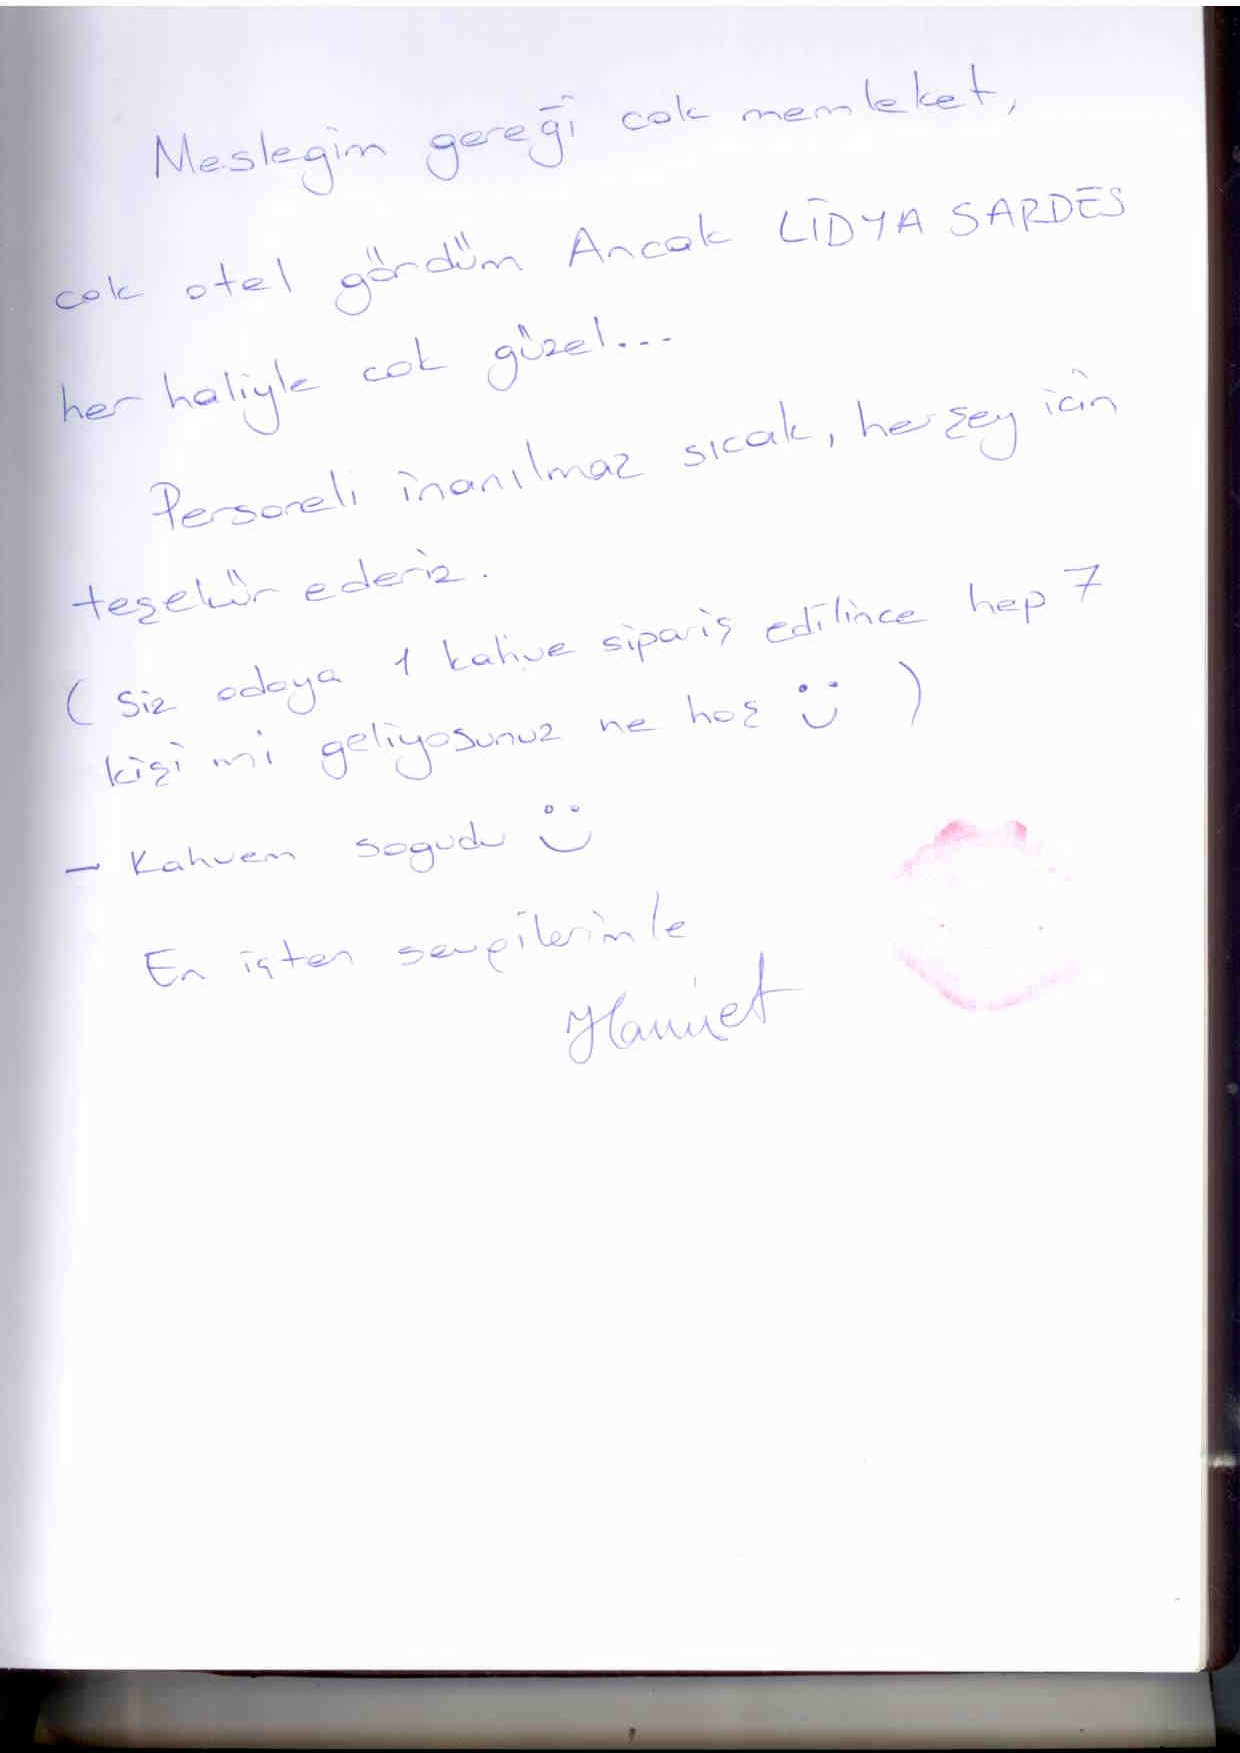 Meslegim gereği cok memleket,
cok otel gördüm Ancak LİDYA SARDES
her haliyle cok güzel...
Personeli inanılmaz sıcak, herşey icin
teşekür ederiz.
( Siz odaya 1 kahve sipariş edilince hep 7
kişi mi geliyosunuz ne hoş )
- Kahvem sogudu
En içten sevgilerimle